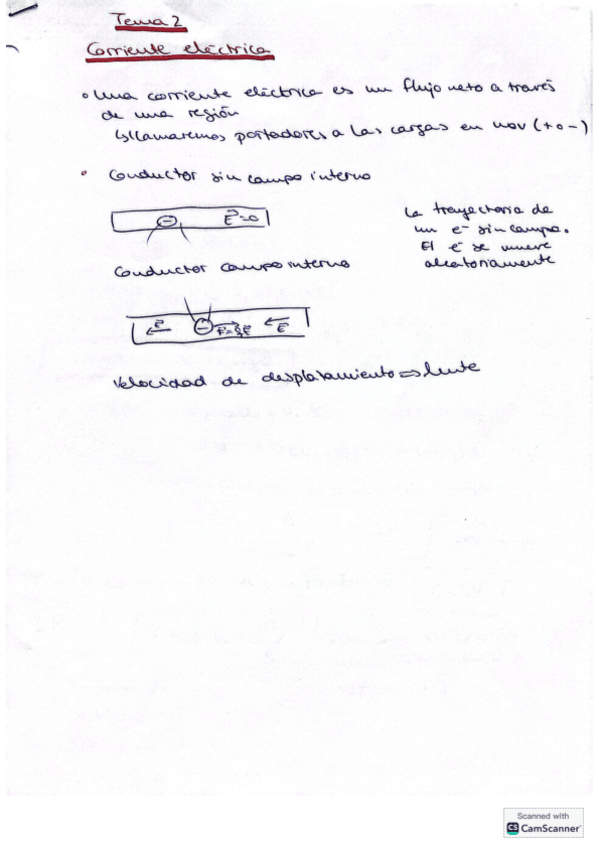 Tema 2
Corriente eléctrica
• Una corriente eléctrica es un flujo neto a través
de una región
↳ llamaremos portadores a las cargas en mov (+ o -)
• Conductor sin campo interno
E=0
La trayectoria de
un e- sin campo.
El e- se mueve
aleatoriamente
Conductor campo interno
E
E
Velocidad de desplazamiento ⇒ lente
Scanned with
CS CamScanner